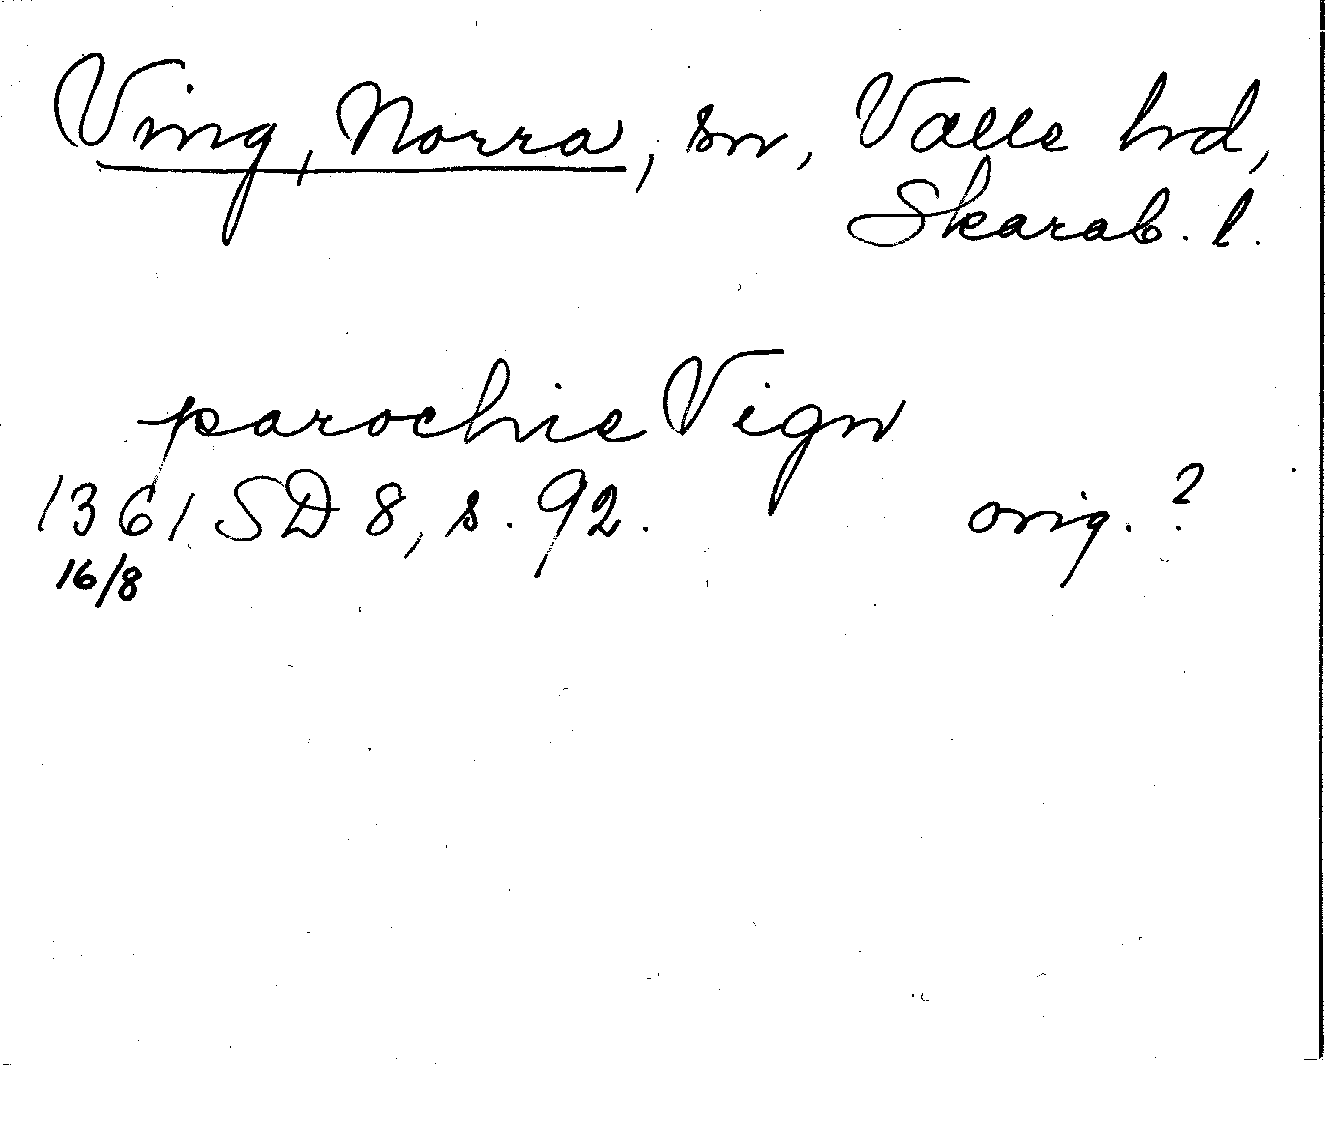 Ving, Norra, sn, Valle hd,
Skarab. l.
parochie Vign
1361 SD 8, s. 92. orig. ?
16/8